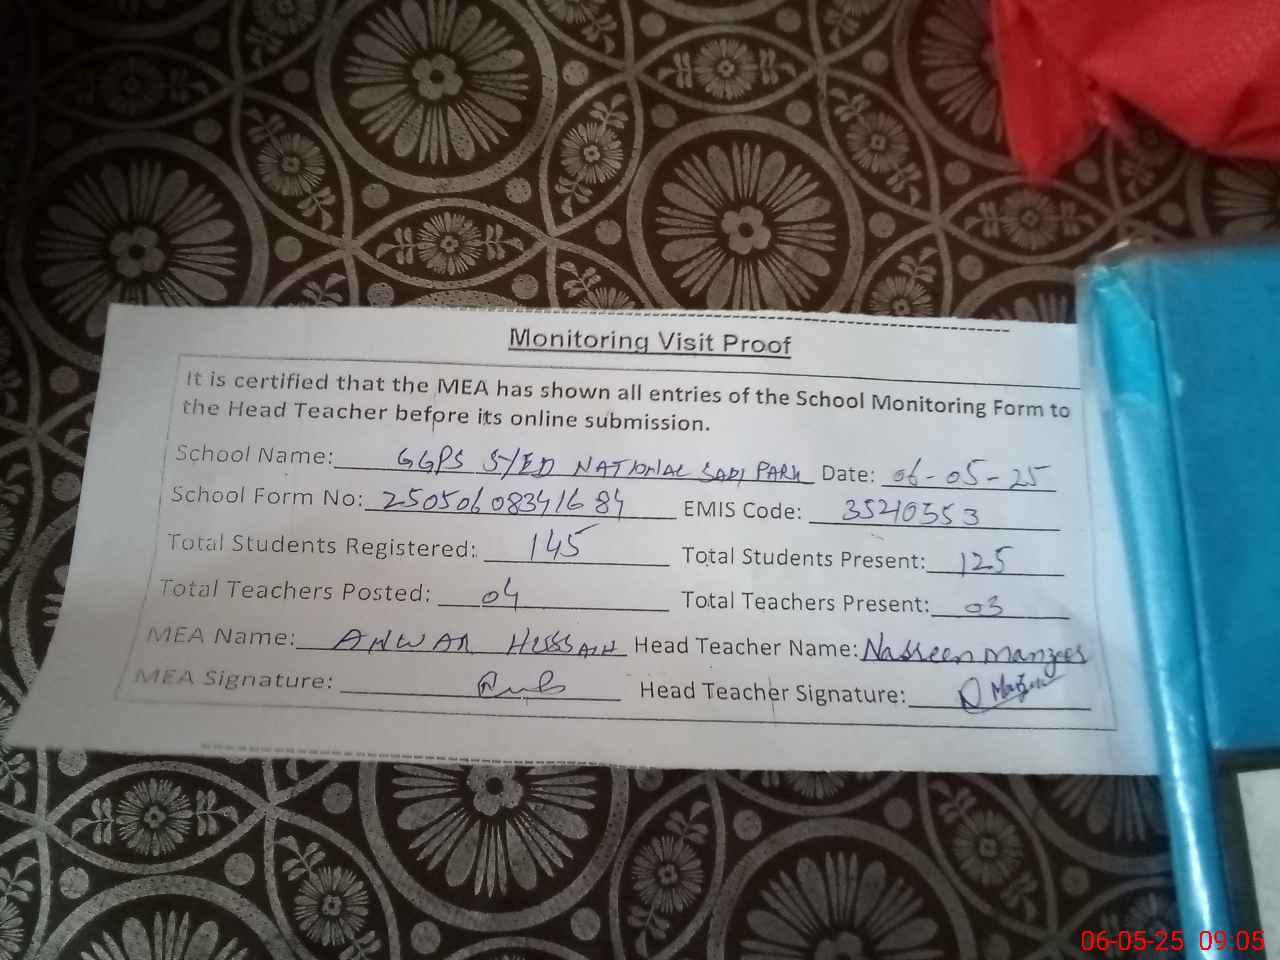 Monitoring Visit Proof
It is certified that the MEA has shown all entries of the School Monitoring Form to
the Head Teacher before its online submission.
School Name: GGPS S/ED NATIONAL SADI PARK Date: 06-05-25
School Form No: 25050608341684 EMIS Code: 35210553
Total Students Registered: 145 Total Students Present: 125
Total Teachers Posted: 04 Total Teachers Present: 03
MEA Name: ANWAR HUSSAIN Head Teacher Name: Nasreen Manzoor
MEA Signature: Head Teacher Signature:
06-05-25 09:05